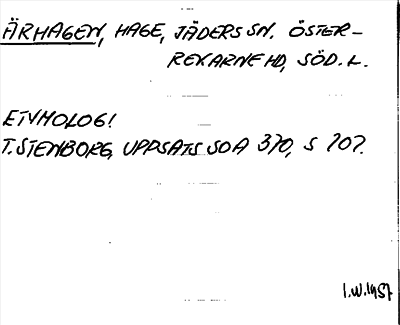 ÄRHAGEN, HAGE, JÄDERS SN, ÖSTER-
REKARNE HD, SÖD. L.
ETYMOLOGI
T. STENBORG, UPPSATS SOA 370, S 707.
I.W. 1957